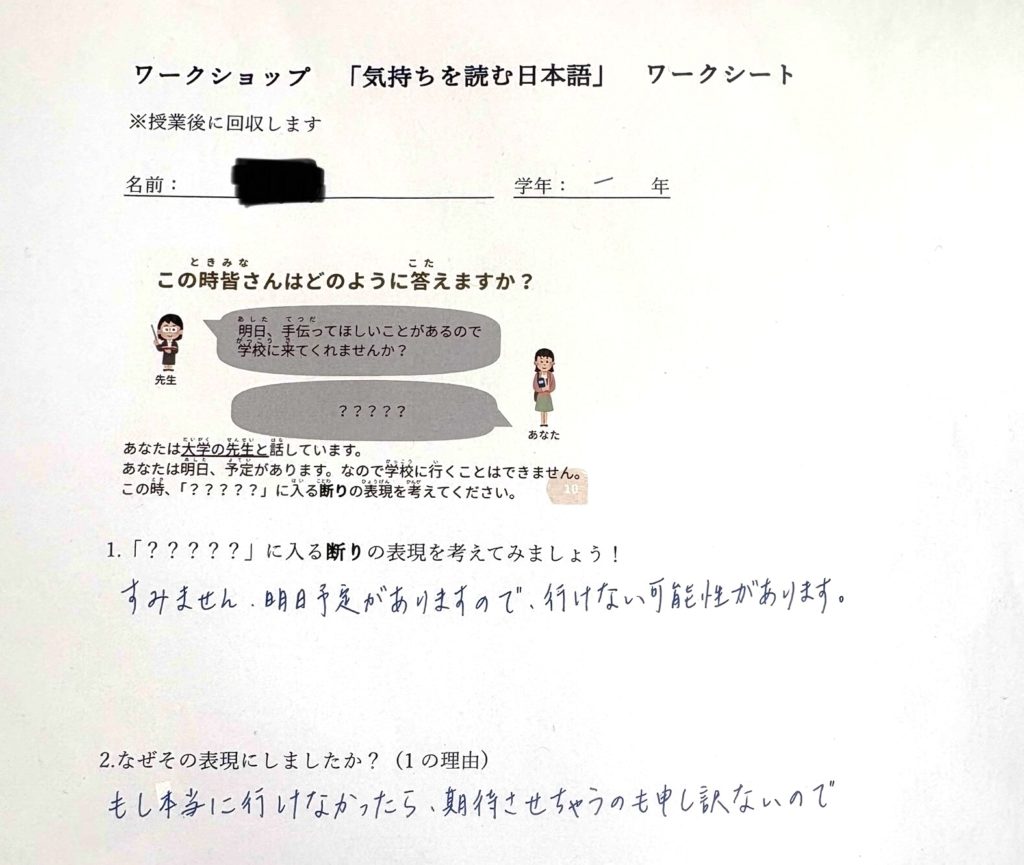 ワークショップ 「気持ちを読む日本語」 ワークシート
※授業後に回収します
名前： 学年： 一 年
ときみな こた
この時皆さんはどのように答えますか？
あした てつだ
明日、手伝ってほしいことがあるので
がっこう き
学校に来てくれませんか？
先生
？？？？？
あなた
だいがく せんせい はな
あなたは大学の先生と話しています。
あした よてい がっこう い
あなたは明日、予定があります。なので学校に行くことはできません。
とき はい ことわ ひょうげん かんが
この時、「？？？？？」に入る断りの表現を考えてください。
10
1.「？？？？？」に入る断りの表現を考えてみましょう！
すみません、明日予定がありますので、行けない可能性があります。
2.なぜその表現にしましたか？（1 の理由）
もし本当に行けなかったら、期待させちゃうのも申し訳ないので